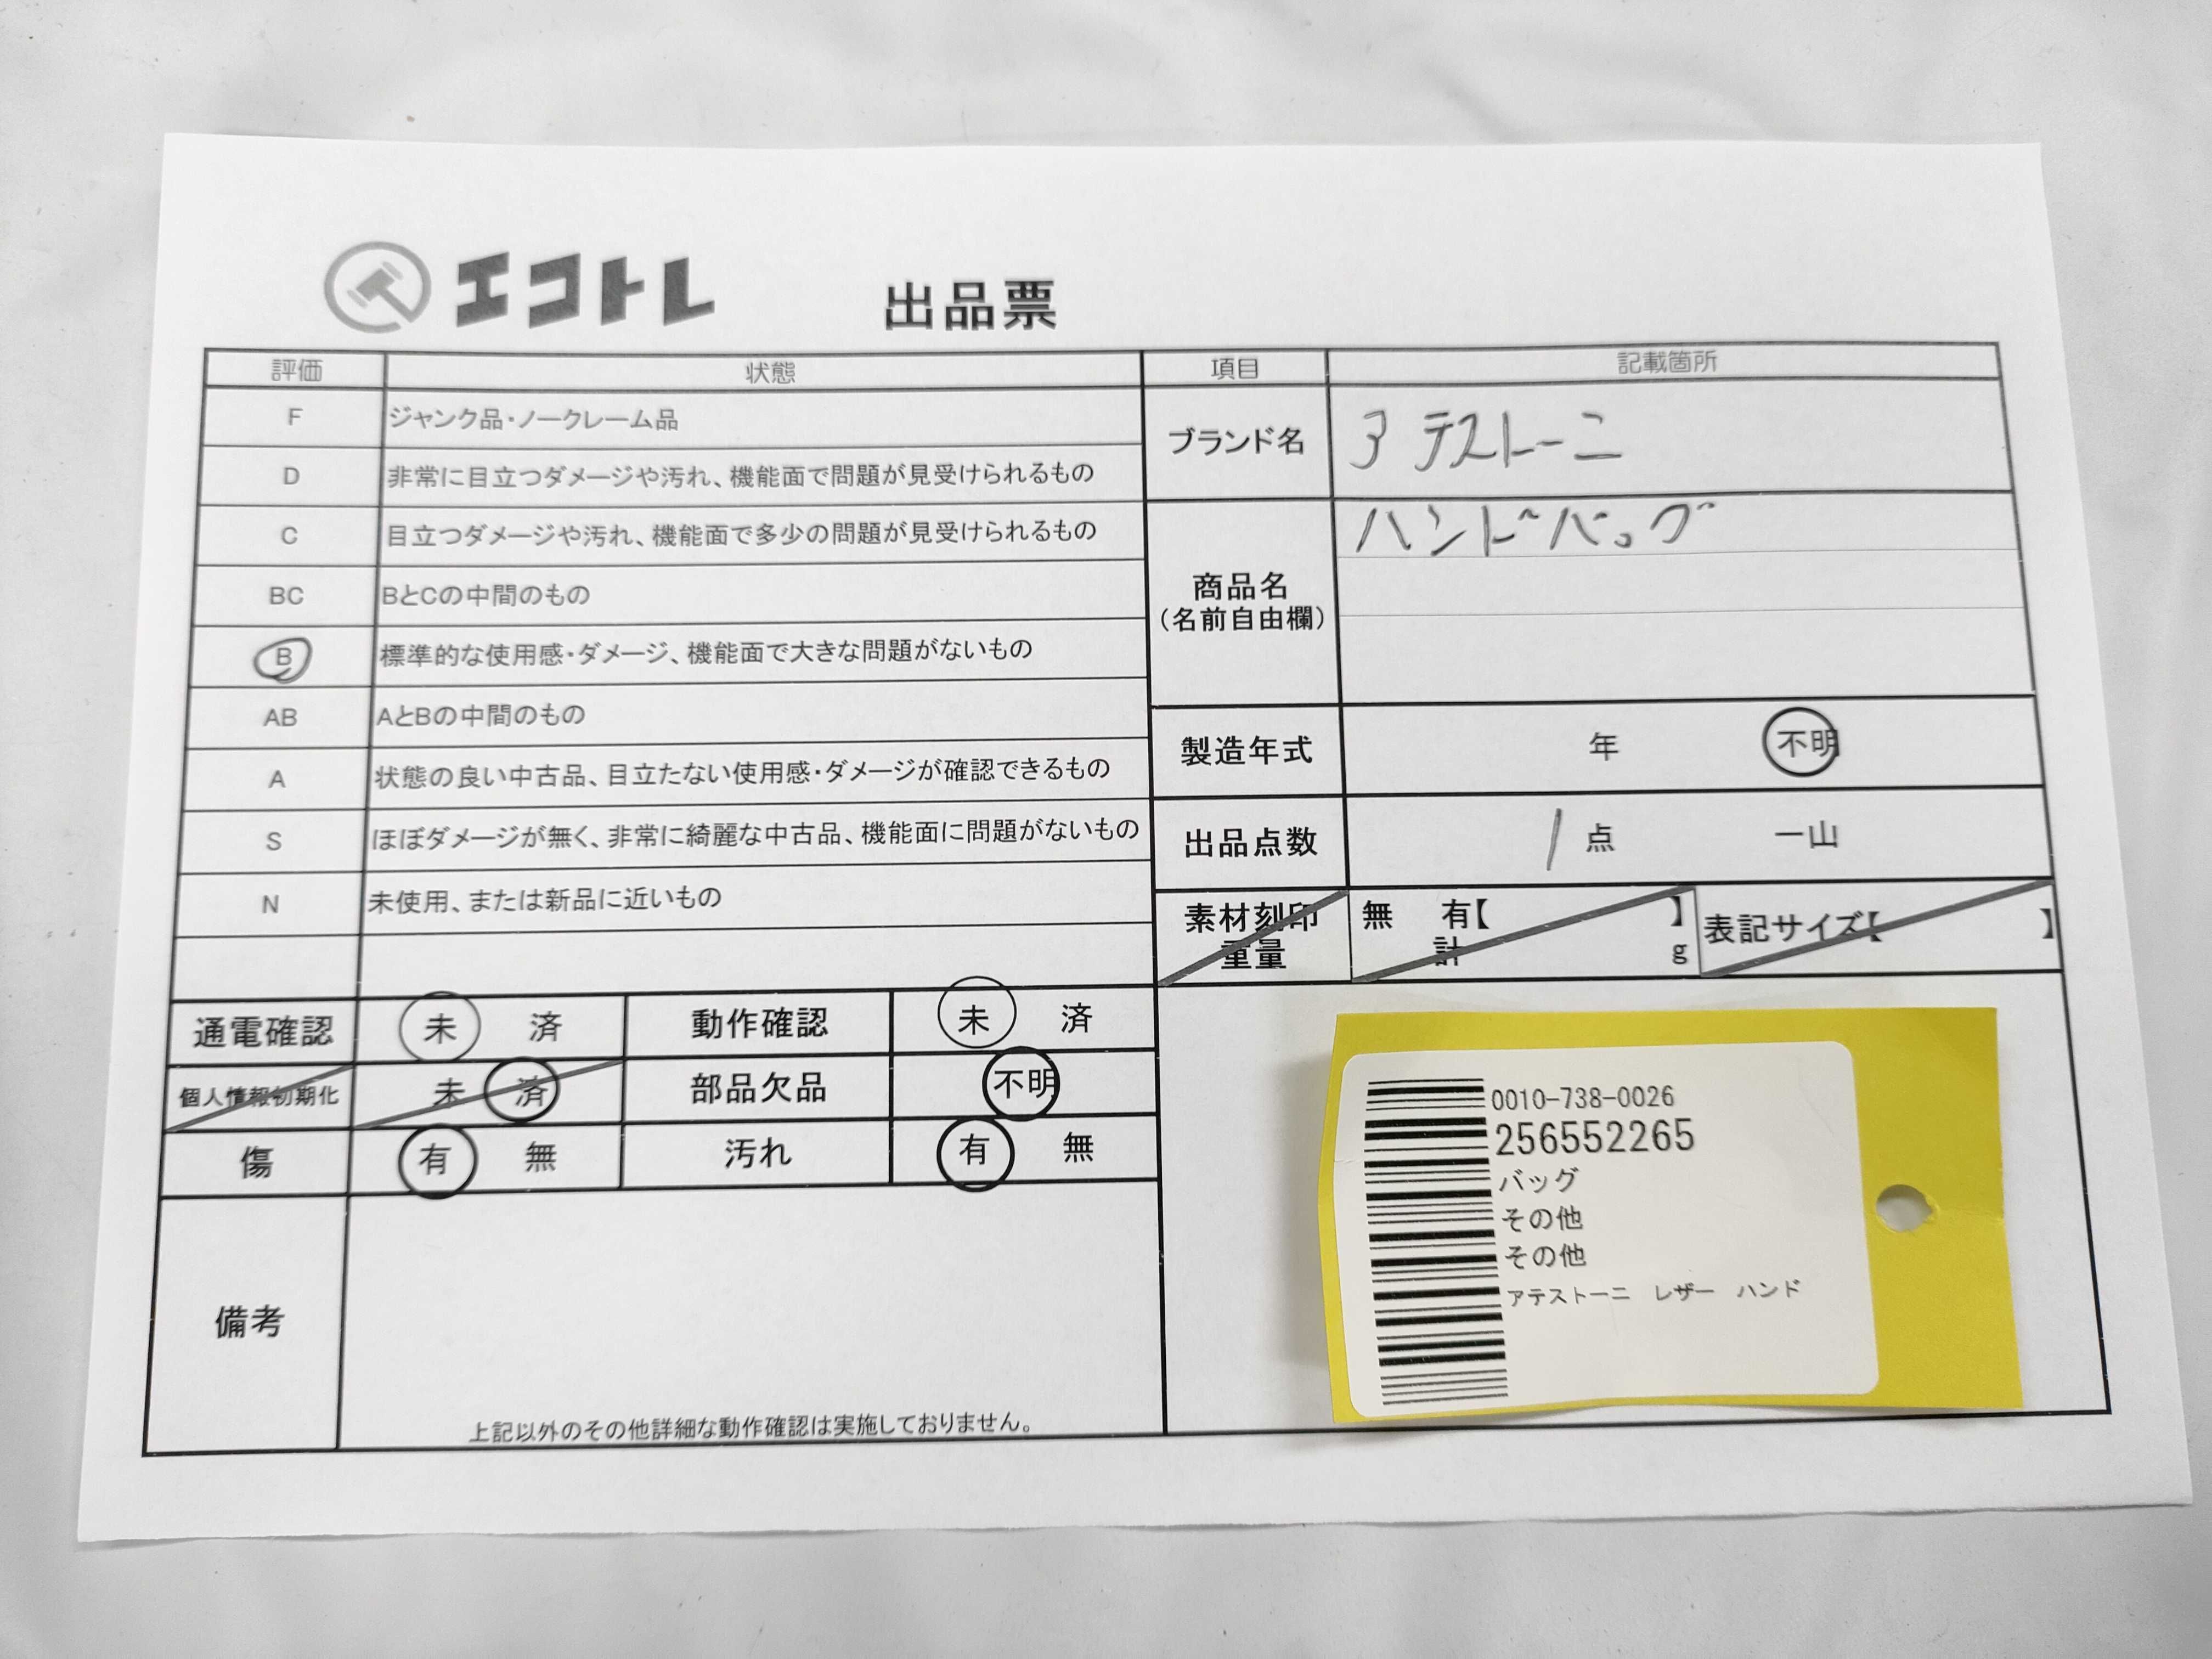 エコトレ 出品票
評価 状態 項目 記載箇所
F ジャンク品・ノークレーム品
D 非常に目立つダメージや汚れ、機能面で問題が見受けられるもの
C 目立つダメージや汚れ、機能面で多少の問題が見受けられるもの
BC BとCの中間のもの
B 標準的な使用感・ダメージ、機能面で大きな問題がないもの
AB AとBの中間のもの
A 状態の良い中古品、目立たない使用感・ダメージが確認できるもの
S ほぼダメージが無く、非常に綺麗な中古品、機能面に問題がないもの
N 未使用、または新品に近いもの
ブランド名 ア テストーニ
商品名 ハンドバッグ
(名前自由欄)
製造年式 年 不明
出品点数 1 点 一山
素材刻印 無 有【 】 表記サイズ【 】
重量 計 g
通電確認 未 済 動作確認 未 済
個人情報初期化 未 済 部品欠品 不明
傷 有 無 汚れ 有 無
備考
上記以外のその他詳細な動作確認は実施しておりません。
0010-738-0026
256552265
バッグ
その他
その他
アテストーニ レザー ハンド